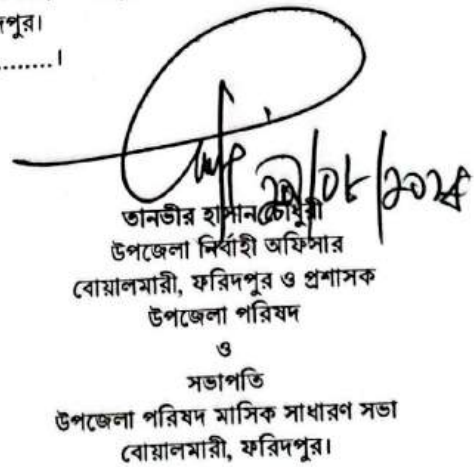 দপুর।
........।
/০৮/২০২৫
তানভীর হাসান চৌধুরী
উপজেলা নির্বাহী অফিসার
বোয়ালমারী, ফরিদপুর ও প্রশাসক
উপজেলা পরিষদ
ও
সভাপতি
উপজেলা পরিষদ মাসিক সাধারণ সভা
বোয়ালমারী, ফরিদপুর।